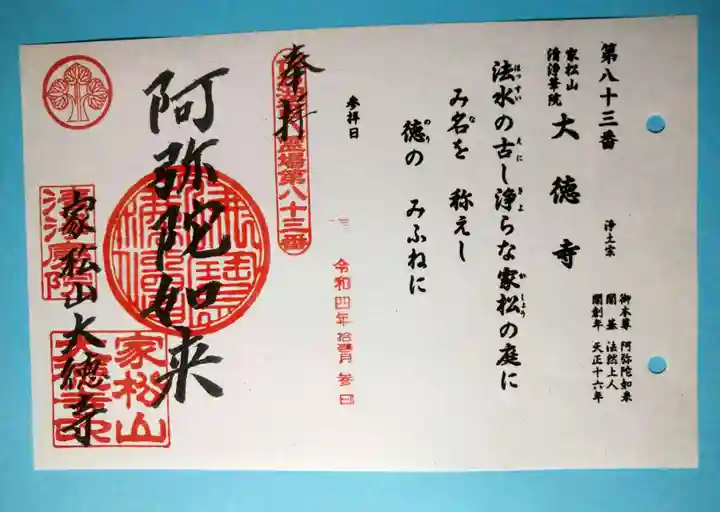 第八十三番
家松山
清浄華院
大徳寺
浄土宗
御本尊 阿弥陀如来
開基 法然上人
開創年 天正十六年
法水の古し浄らな家松の庭に
はっすい えに きよ かしょう
み名を 称えし
な
徳の みふねに
のり
参拝日
令和四年拾壱月参日
奉拝
霊場第八十三番
阿弥陀如来
家松山大徳寺
家松山